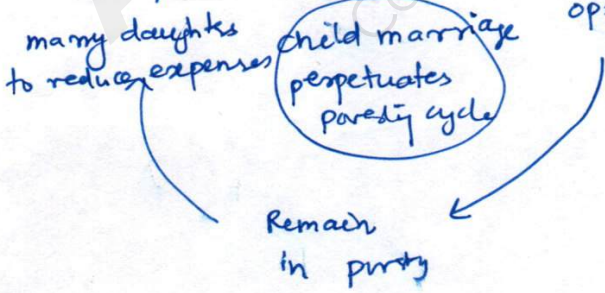 many daughters
to reduce expenses
child marriage
perpetuates
poverty cycle
op
Remain
in